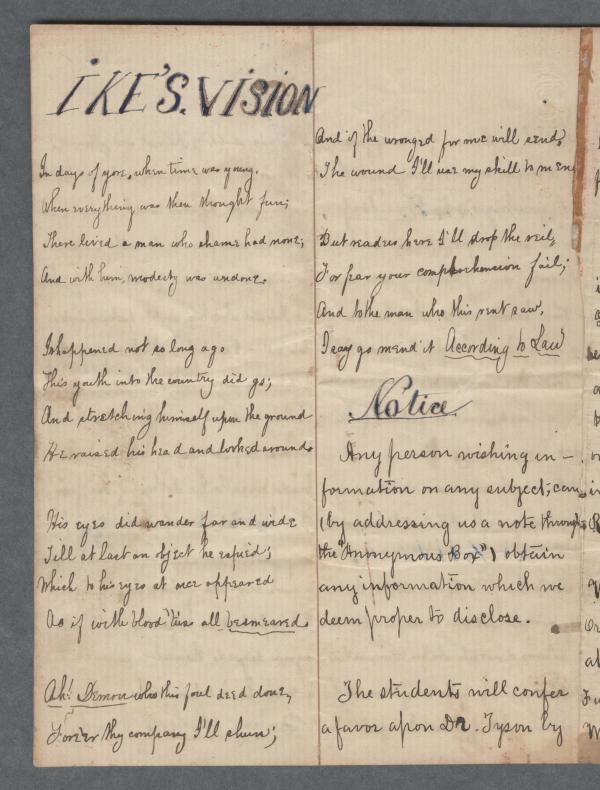 IKE'S. VISION
In days of yore, when time was young.
When everything was then thought fun;
There lived a man who shame had none;
And with him, modesty was undone.
It happened not so long ago
This youth into the country did go;
And stretching himself upon the ground
He raised his head and looked around.
His eyes did wander far and wide
Till at last an object he espied;
Which to his eyes at once appeared
As if with blood 'twas all besmeared.
Ah! Demon who this foul deed done,
Forever thy company I'll shun;
And if the wronged for me will send,
The wound I'll use my skill to mend
But readers here I'll drop the veil,
For fear your comprehension fail;
And to the man who this rent saw,
I say go mend it According to Law
Notice
Any person wishing in-
formation on any subject, can,
(by addressing us a note through
the "Anonymous Box") obtain
any information which we
deem proper to disclose.
The students will confer
a favor apon Dr. Tyson by